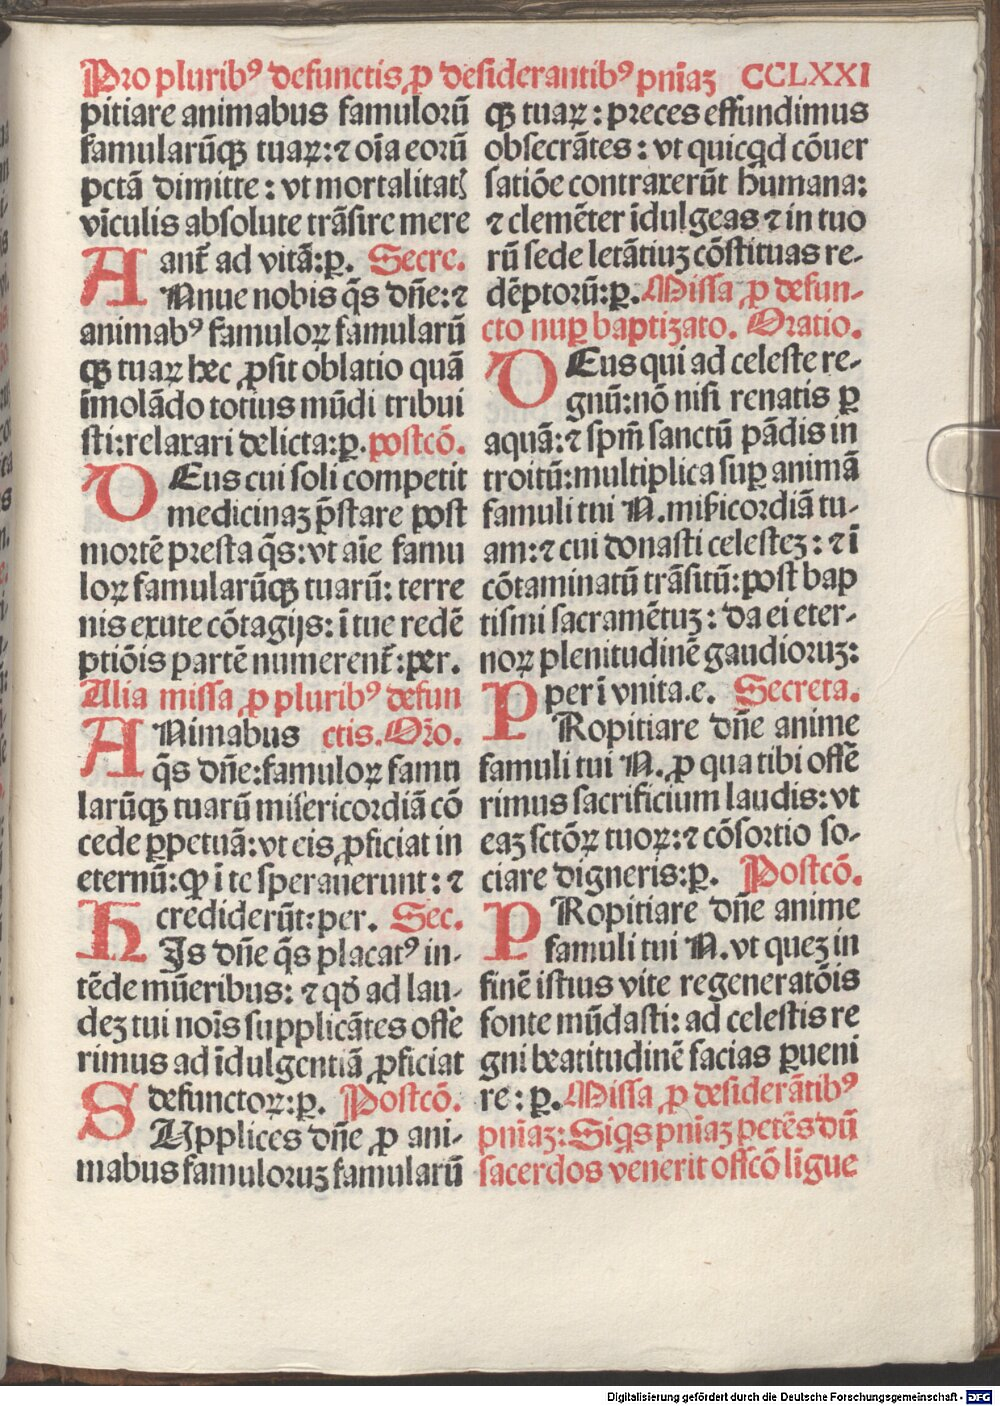 Pro pluribꝰ defunctis ꝓ desiderantibꝰ pniaꝫ CCLXXI
pitiare animabus famulorū
famularūqꝫ tuaꝝ: ⁊ oīa eorū
pctā dimitte: vt mortalitatꝭ
vīculis absolute trāsire mere
anſ ad vitā: ꝑ. Secre.
ANnue nobis q̄s dn̄e: ⁊
animabꝰ famuloꝝ famularū
qꝫ tuaꝝ hec ꝓsit oblatio quā
īmolādo totius mūdi tribui
sti: relaxari delicta: ꝑ. postcō.
DEus cui soli competit
medicinaꝫ p̄stare post
mortē presta q̄s: vt aīe famu
loꝝ famularūqꝫ tuarū: terre
nis exute cōtagijs: ī tue redē
ptiōis partē numerent̄: per.
Alia missa ꝓ pluribꝰ defun
ANimabus ctis. Oro.
q̄s dn̄e: famuloꝝ famu
larūqꝫ tuarū misericordiā cō
cede ꝑpetuā: vt eis ꝓficiat in
eternū: ꝙ ī te sperauerunt: ⁊
crediderūt: per. Sec.
HIs dn̄e q̄s placatꝰ in-
tēde mūeribus: ⁊ qd̄ ad lau-
deꝫ tui noīs supplicātes offe
rimus ad īdulgentiā ꝓficiat
defunctoꝝ: ꝑ. Postcō.
SUpplices dn̄e ꝓ ani-
mabus famuloruꝫ famularū
qꝫ tuaꝝ: preces effundimus
obsecrātes: vt quicqd cōuer
satiōe contraxerūt humana:
⁊ clemēter īdulgeas ⁊ in tuo
rū sede letātiuꝫ cōstituas re-
dēptorū: ꝑ. Missa ꝓ defun-
cto nuꝑ baptizato. Oratio.
DEus qui ad celeste re-
gnū: nō nisi renatis ꝑ
aquā: ⁊ spm̄ sanctū pādis in
troitū: multiplica suꝑ animā
famuli tui N. mīcordiā tu-
am: ⁊ cui donasti celesteꝫ: ⁊ ī
cōtaminatū trāsitū: post bap
tismi sacramētuꝫ: da ei eter-
noꝝ plenitudinē gaudioruꝫ:
per ī vnita. e. Secreta.
PRopitiare dn̄e anime
famuli tui N. ꝓ qua tibi offē
rimus sacrificium laudis: vt
eaꝫ sctōꝝ tuoꝝ: ⁊ cōsortio so-
ciare digneris: ꝑ. Postcō.
PRopitiare dn̄e anime
famuli tui N. vt queꝫ in
finē istius vite regeneratōis
fonte mūdasti: ad celestis re
gni beatitudinē facias ꝑueni
re: ꝑ. Missa ꝓ desiderātibꝰ
pniaꝫ: Siqs pniaꝫ petēs dū
sacerdos venerit offcō līgue
Digitalisierung gefördert durch die Deutsche Forschungsgemeinschaft - DFG